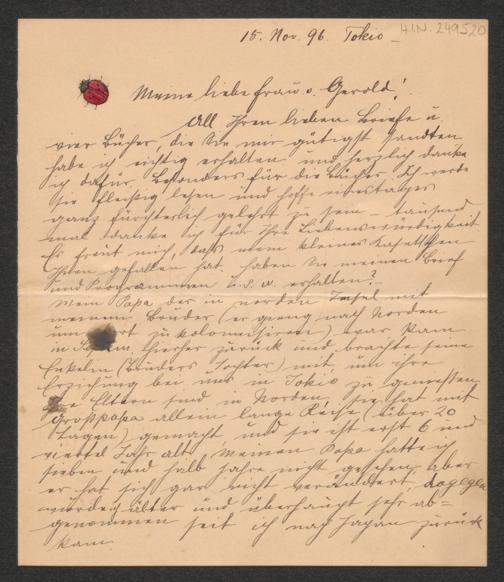 15. Nov. 96. Tokio –
H.I.N. 249520
Meine liebe Frau v. Gerold!
All Ihren lieben Briefe u
vier Bücher, die Sie mir gütigst sandten
habe ich richtig erhalten und herzlich danke
ich dafür. Besonders für die Bücher. Ich werde
sie fleißig lesen und hoffe einestages
ganz fürchterlich gelehrt zu sein – tausend
mal danke ich für Ihre Liebenswürdigkeit
Es freut mich, daß mein kleines
Ihnen gefallen hat. haben Sie meinen Brief
und Programmen u. s. w. erhalten? –
Mein Papa der in norden Insel mit
meinem Bruder (er gieng nach Norden
um dort zu kolonisiren) war kam
in hierher zurück und brachte seine
Enkelin (bruders Tochter) mit, um ihre
Erziehung bei uns in Tokio zu genießen,
Die Eltern sind in Norden, sie hat mit
Großpapa allein lange Reise (über 20
Tagen) gemacht, und sie ist erst 6 und
viertel Jahr alt. Meinen Papa hatte ich
sieben und halb Jahre nicht gesehen, aber
er hat sich gar nicht verändert, dagegen
würdig älter und überhaupt sehr ab=
genommen seit ich nach Japan zurück
kam